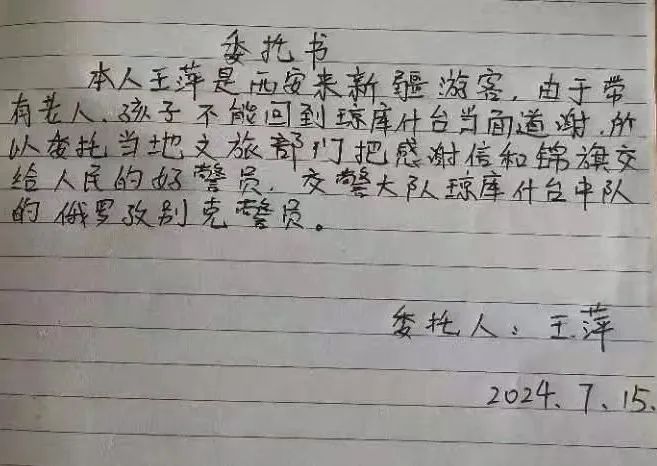 委托书
本人王萍是西安来新疆游客，由于带
有老人、孩子不能回到琼库什台当面道谢，所
以委托当地文旅部门把感谢信和锦旗交
给人民的好警员，交警大队琼库什台中队
的俄罗孜别克警员。
委托人：王萍
2024.7.15.